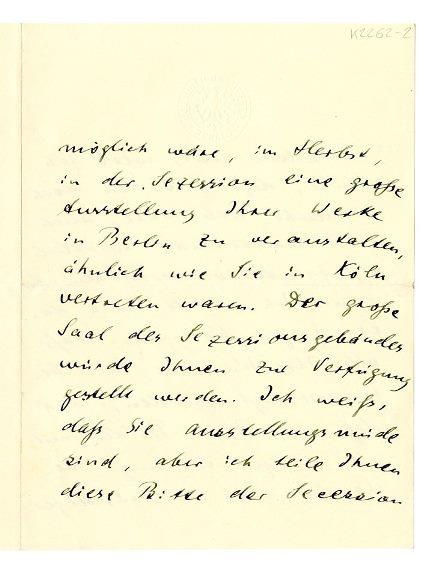 K2262-2
möglich wäre, im Herbst,
in der Sezession eine große
Ausstellung Ihrer Werke
in Berlin zu veranstalten,
ähnlich wie Sie in Köln
vertreten waren. Der große
Saal des Sezessionsgebäudes
würde Ihnen zur Verfügung
gestellt werden. Ich weiß,
daß Sie ausstellungsmüde
sind, aber ich teile Ihnen
diese Bitte der Secession